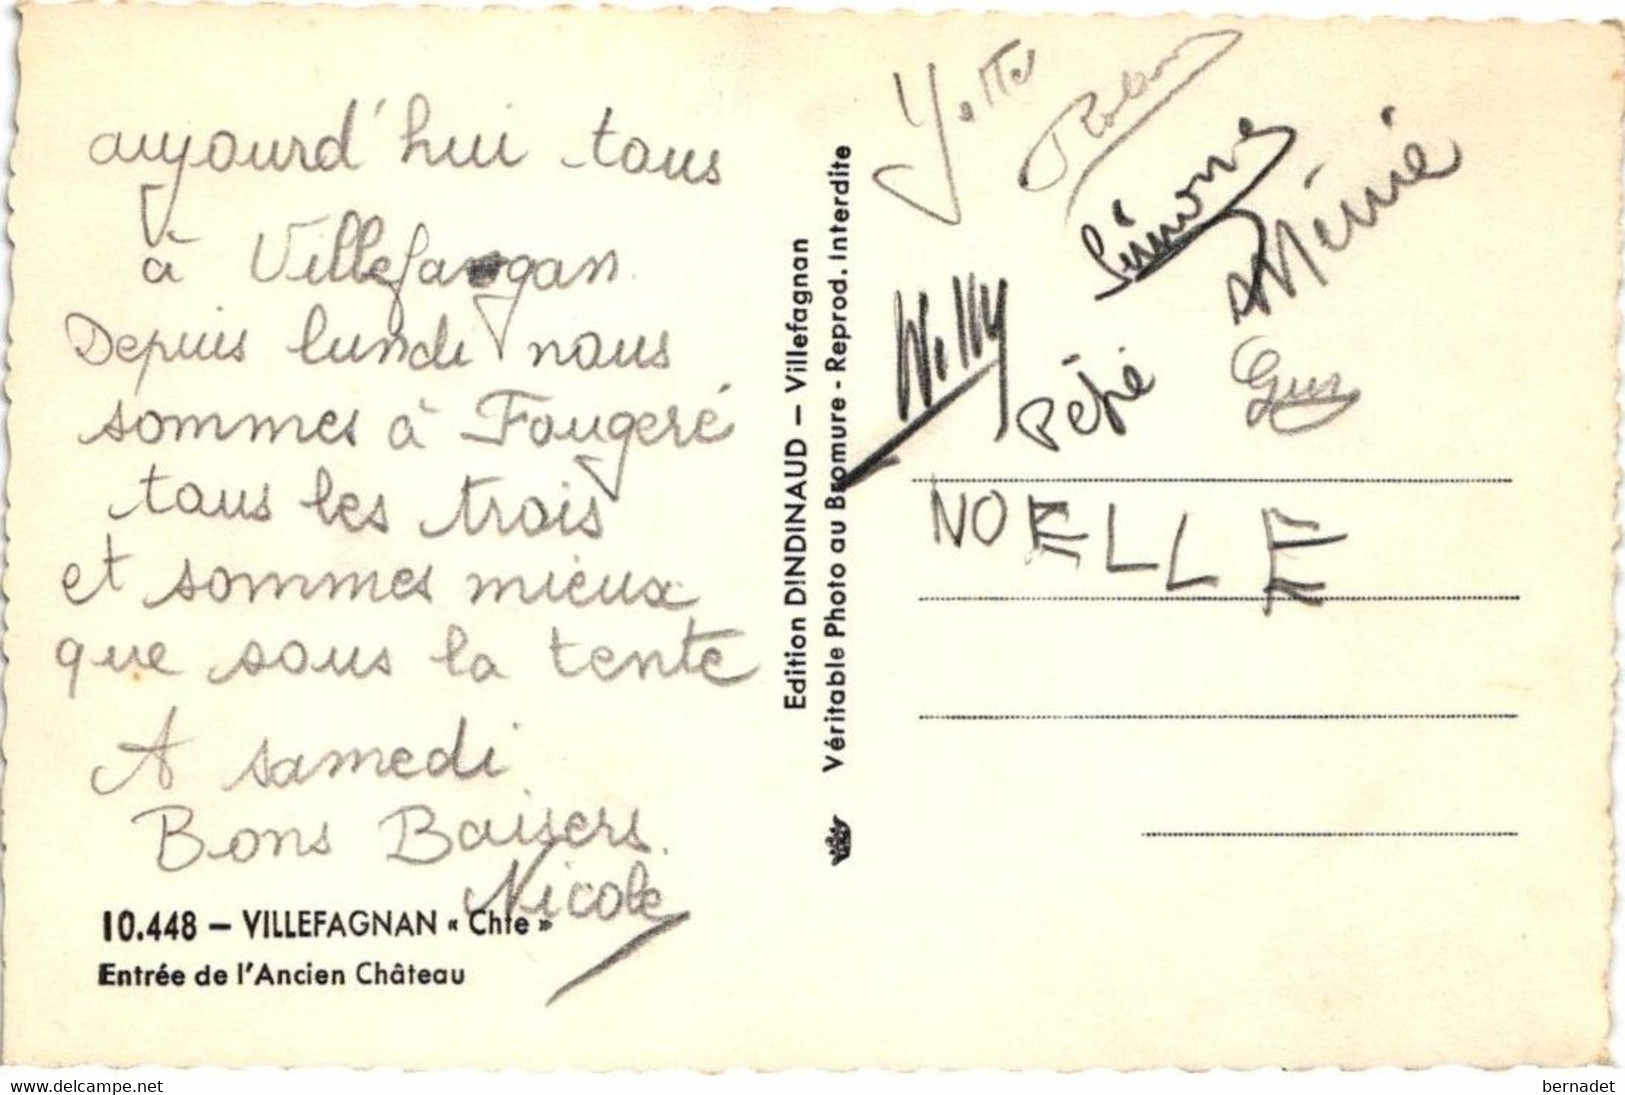 aujourd'hui tous
à Villefargan.
Depuis lundi nous
sommes à Fougeré
tous les trois
et sommes mieux
que sous la tente
A samedi
Bons Baisers.
Nicole
10.448 – VILLEFAGNAN « Chte »
Entrée de l'Ancien Château
Edition DINDINAUD – Villefagnan
Véritable Photo au Bromure - Reprod. Interdite
Simone
Willy
Pépé
Guy
NOELLE
delcampe.net
bernadet